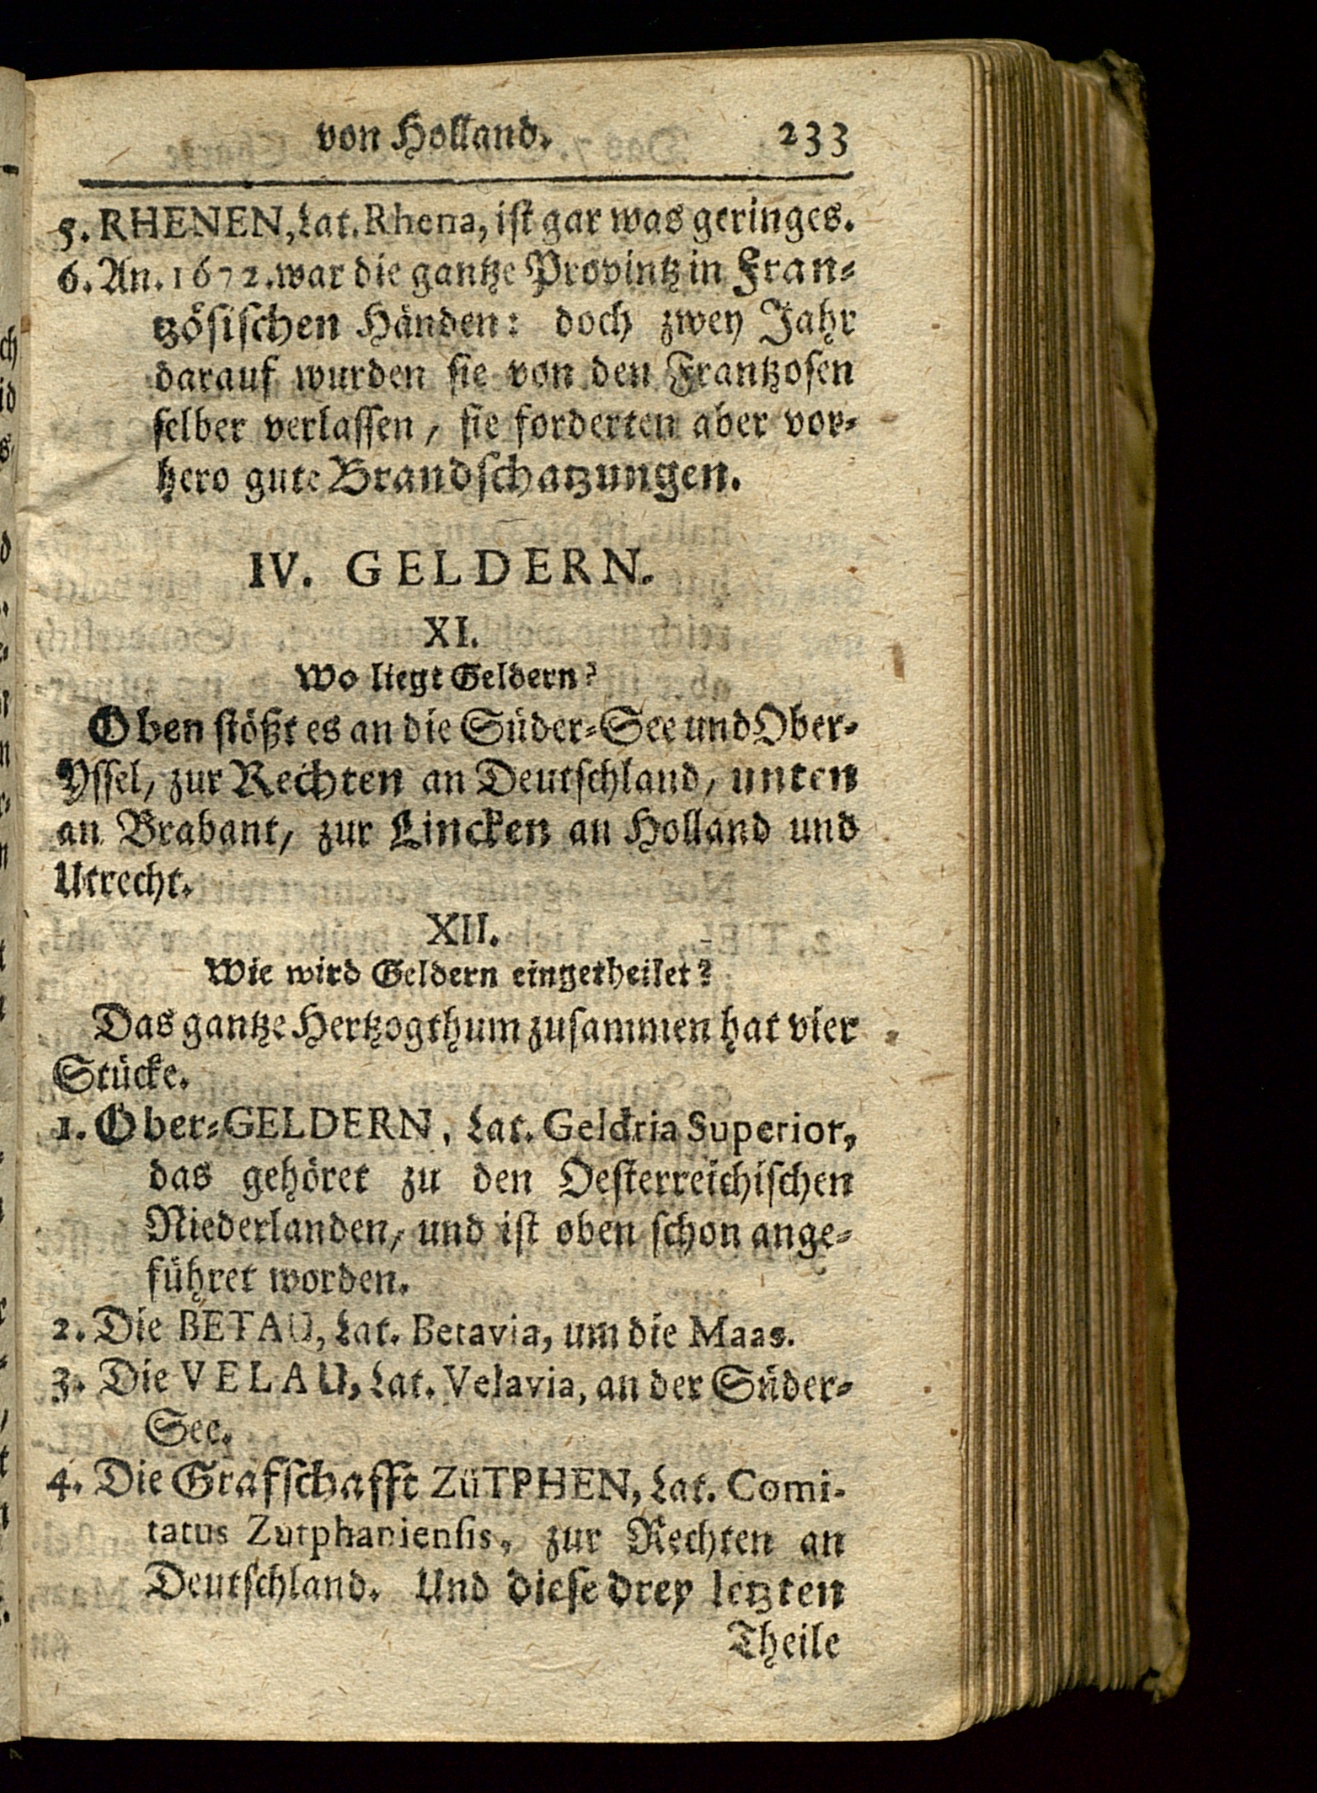 von Holland. 233
5. RHENEN, Lat. Rhena, ist gar was geringes.
6. An. 1672. war die gantze Provintz in Fran-
tzösischen Händen: doch zwey Jahr
darauf wurden sie von den Frantzosen
selber verlassen, sie forderten aber vor-
hero gute Brandschatzungen.
IV. GELDERN.
XI.
Wo liegt Geldern?
Oben stößt es an die Süder-See und Ober-
Yssel, zur Rechten an Deutschland, unten
an Brabant, zur Lincken an Holland und
Utrecht.
XII.
Wie wird Geldern eingetheilet?
Das gantze Hertzogthum zusammen hat vier
Stücke.
1. Ober-GELDERN, Lat. Geldria Superior,
das gehöret zu den Oesterreichischen
Niederlanden, und ist oben schon ange-
führet worden.
2. Die BETAU, Lat. Betavia, um die Maas.
3. Die VELAU, Lat. Velavia, an der Süder-
See.
4. Die Grafschafft ZüTPHEN, Lat. Comi-
tatus Zutphaniensis, zur Rechten an
Deutschland. Und diese drey letzten
Theile